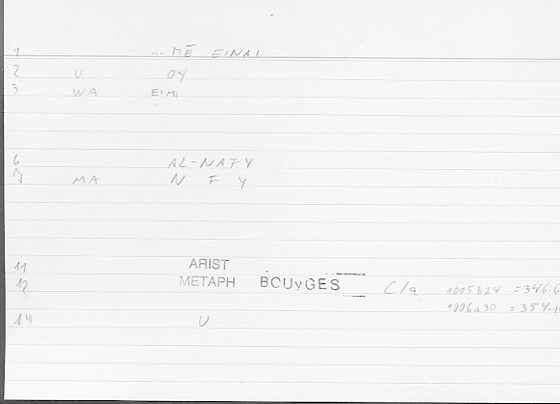 1 ... MĒ EINAI
2 U OY
3 WA EIMI
6 AL-NAFY
7 MA N F Y
11 ARIST
12 METAPH BOUyGES C/a 1005b24 = 346.6
1006a30 = 354.10
14 U